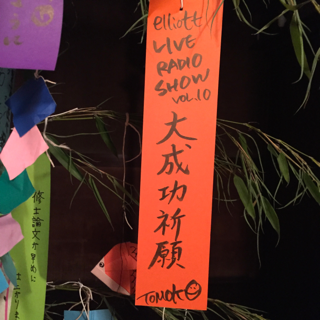 elliott
LIVE
RADIO
SHOW
VOL.10
大成功祈願
TOMOKO
修士論文が早めに